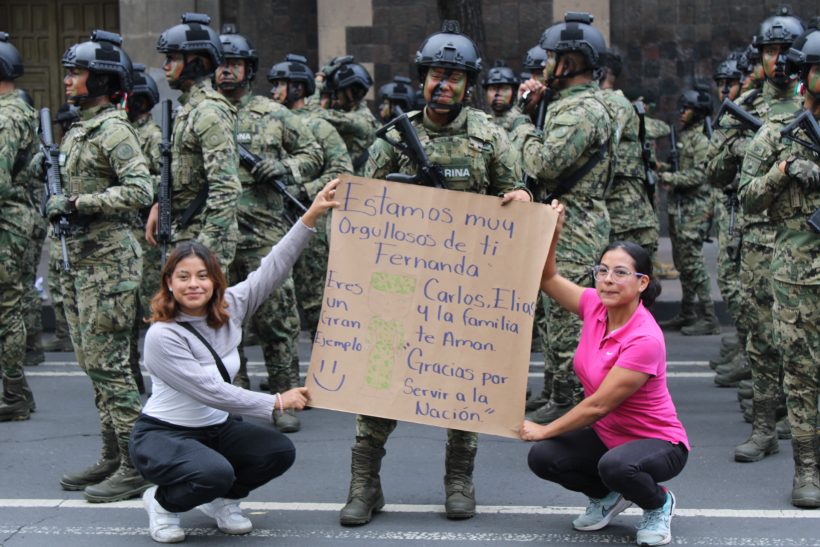 MARINA
Estamos muy
Orgullosos de ti
Fernanda
Eres
un
Gran
Ejemplo
Carlos, Elias
y la familia
te Amon.
"Gracias por
Servir a la
Nación."